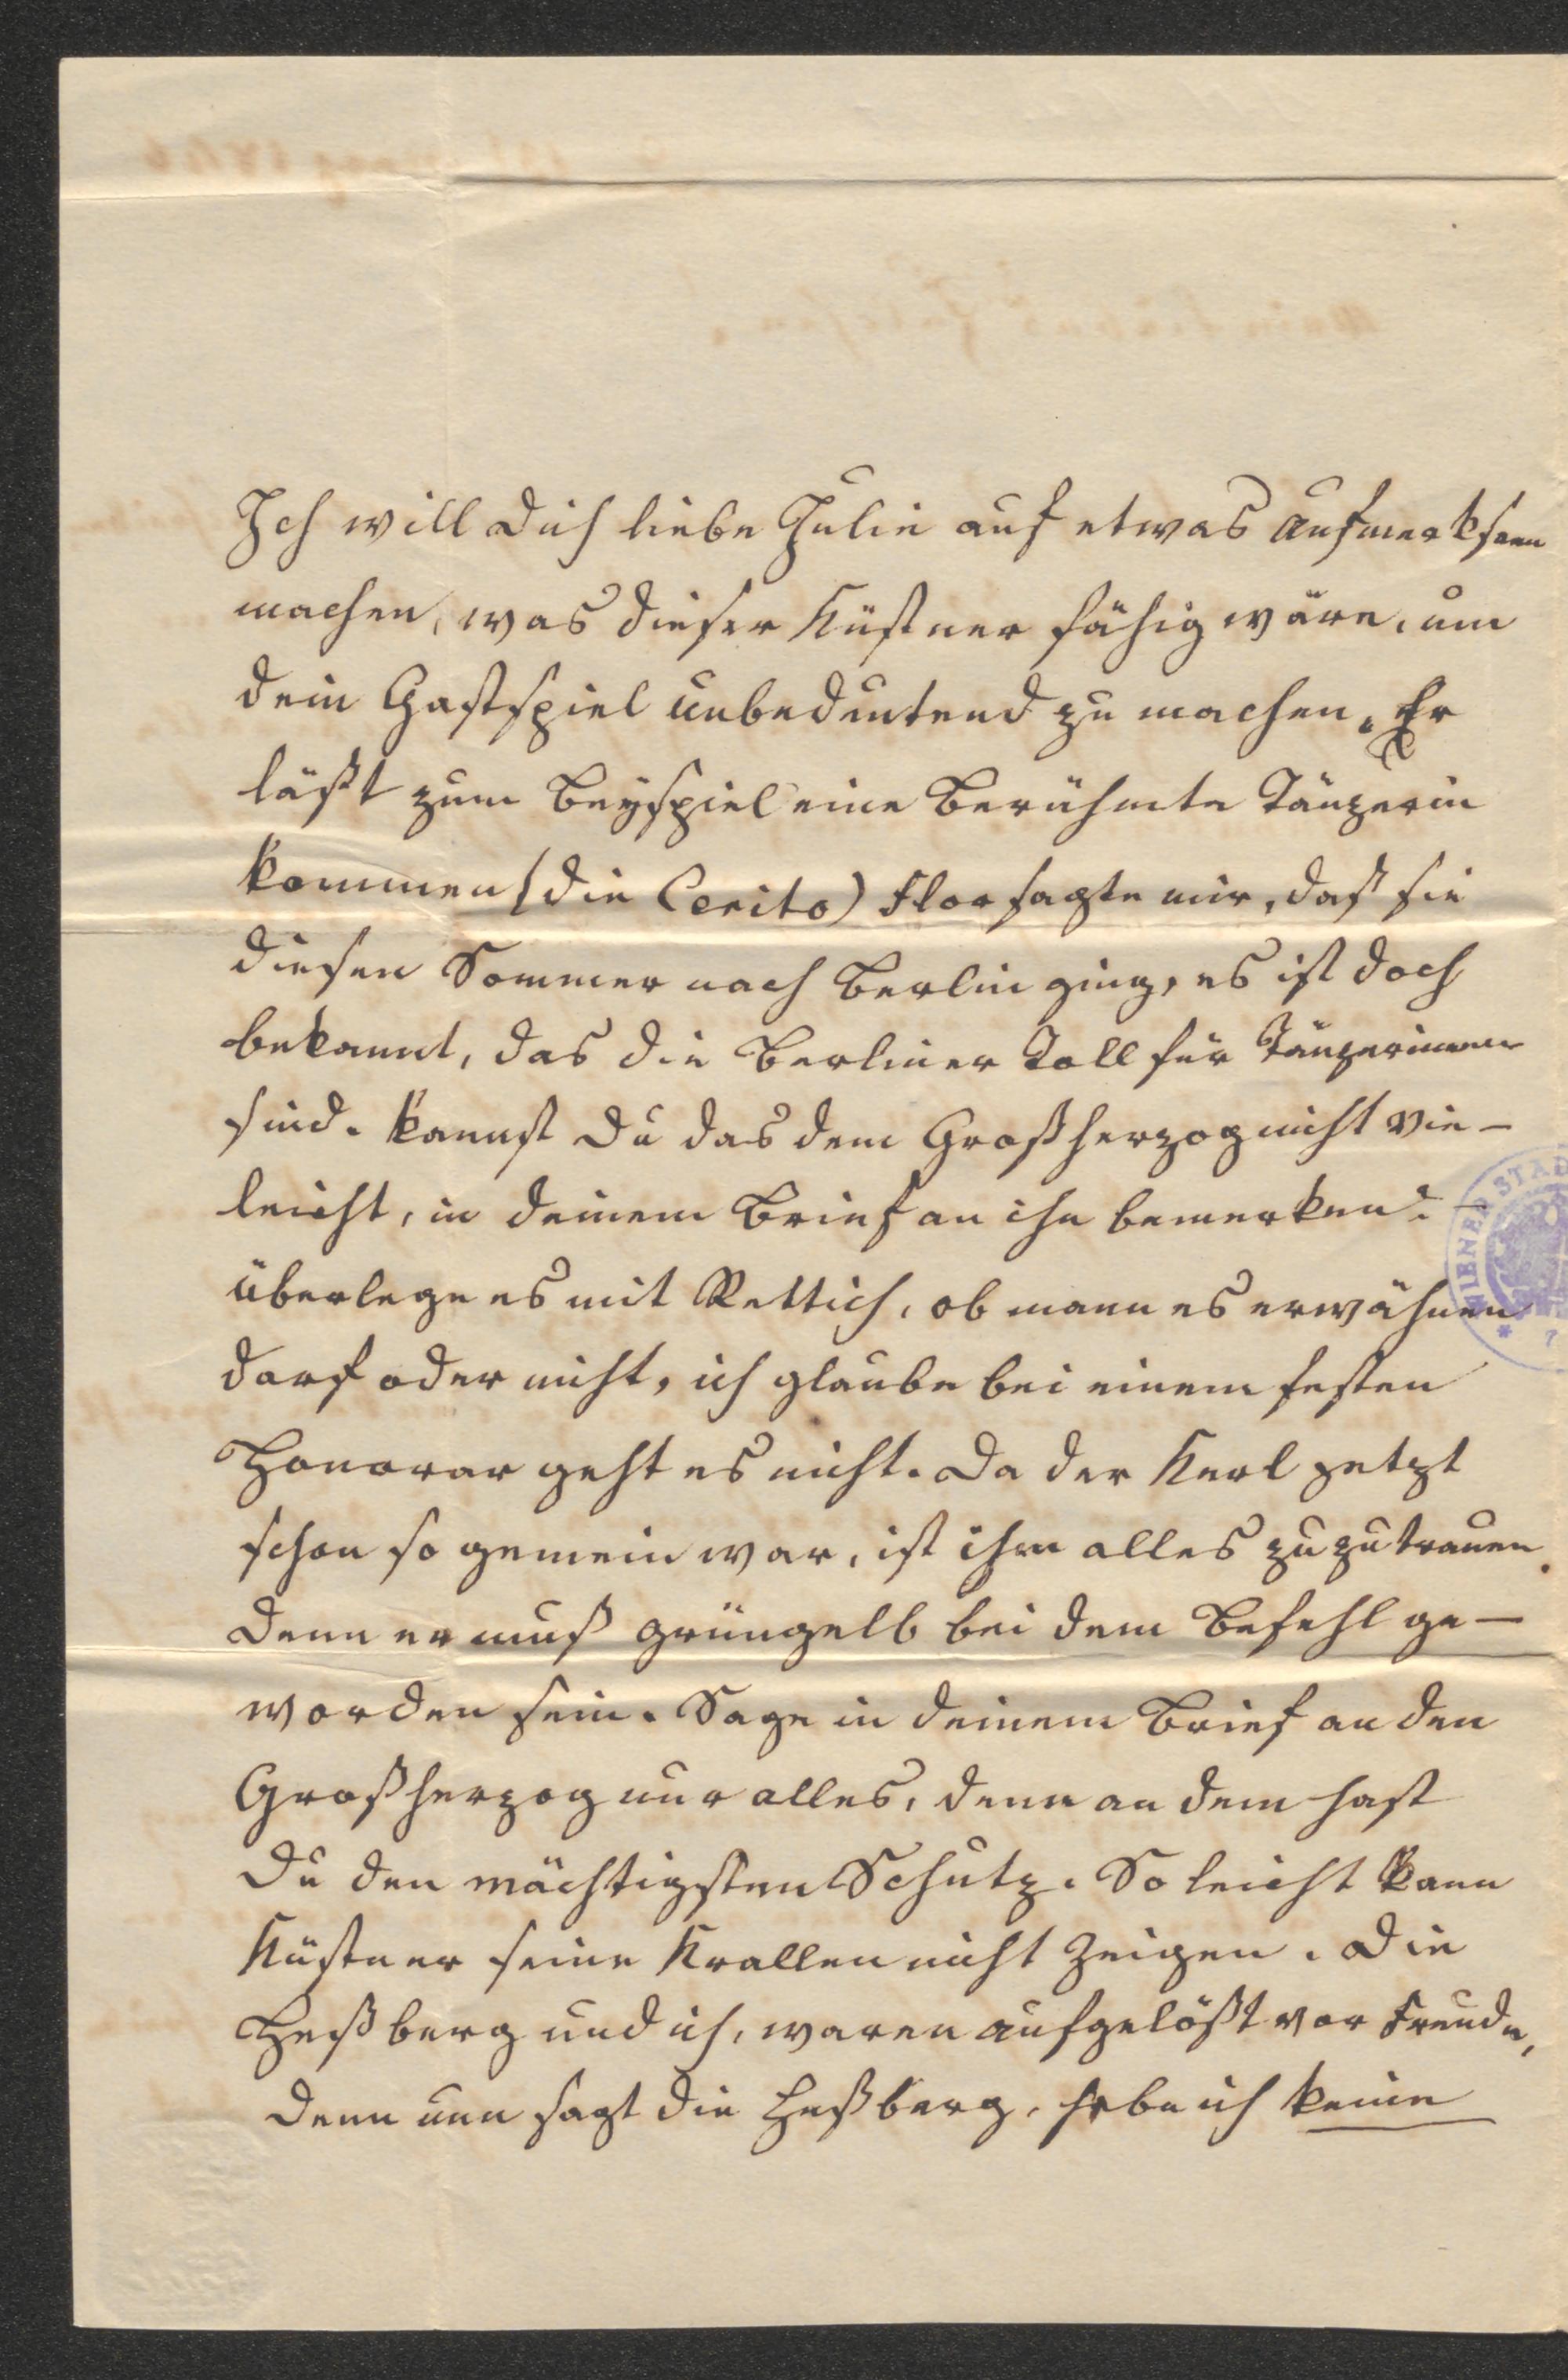 Ich will Dich liebe Julie auf etwas Aufmerksam
machen, was dieser Küstner fähig wäre, um
dein Gastspiel unbedeutend zu machen. Er
läßt zum Beyspiel eine Berühmte Tänzerin
kommen (die Cerito) Flor sagte mir, daß sie
diesen Sommer nach Berlin ging, es ist doch
bekannt, das die Berliner Toll für Tänzerinnen
sind. Kannst Du das dem Großherzog nicht vie-
leicht, in deinem Brief an ihn bemerken?
überlege es mit Rettich, ob mann es erwähnen
darf oder nicht, ich glaube bei einem festen
Honorar geht es nicht. Da der Kerl jetzt
schon so gemein war, ist ihm alles zuzutrauen.
Denn er muß grüngelb bei dem Befehl ge-
worden sein. Sage in deinem Brief an den
Großherzog nur alles, denn an dem hast
Du den mächtigsten Schutz. So leicht kann
Küstner seine Krallen nicht zeigen. Die
Heßberg und ich, waren aufgelößt vor Freude,
denn nun sagt die Heßberg, habe ich keine